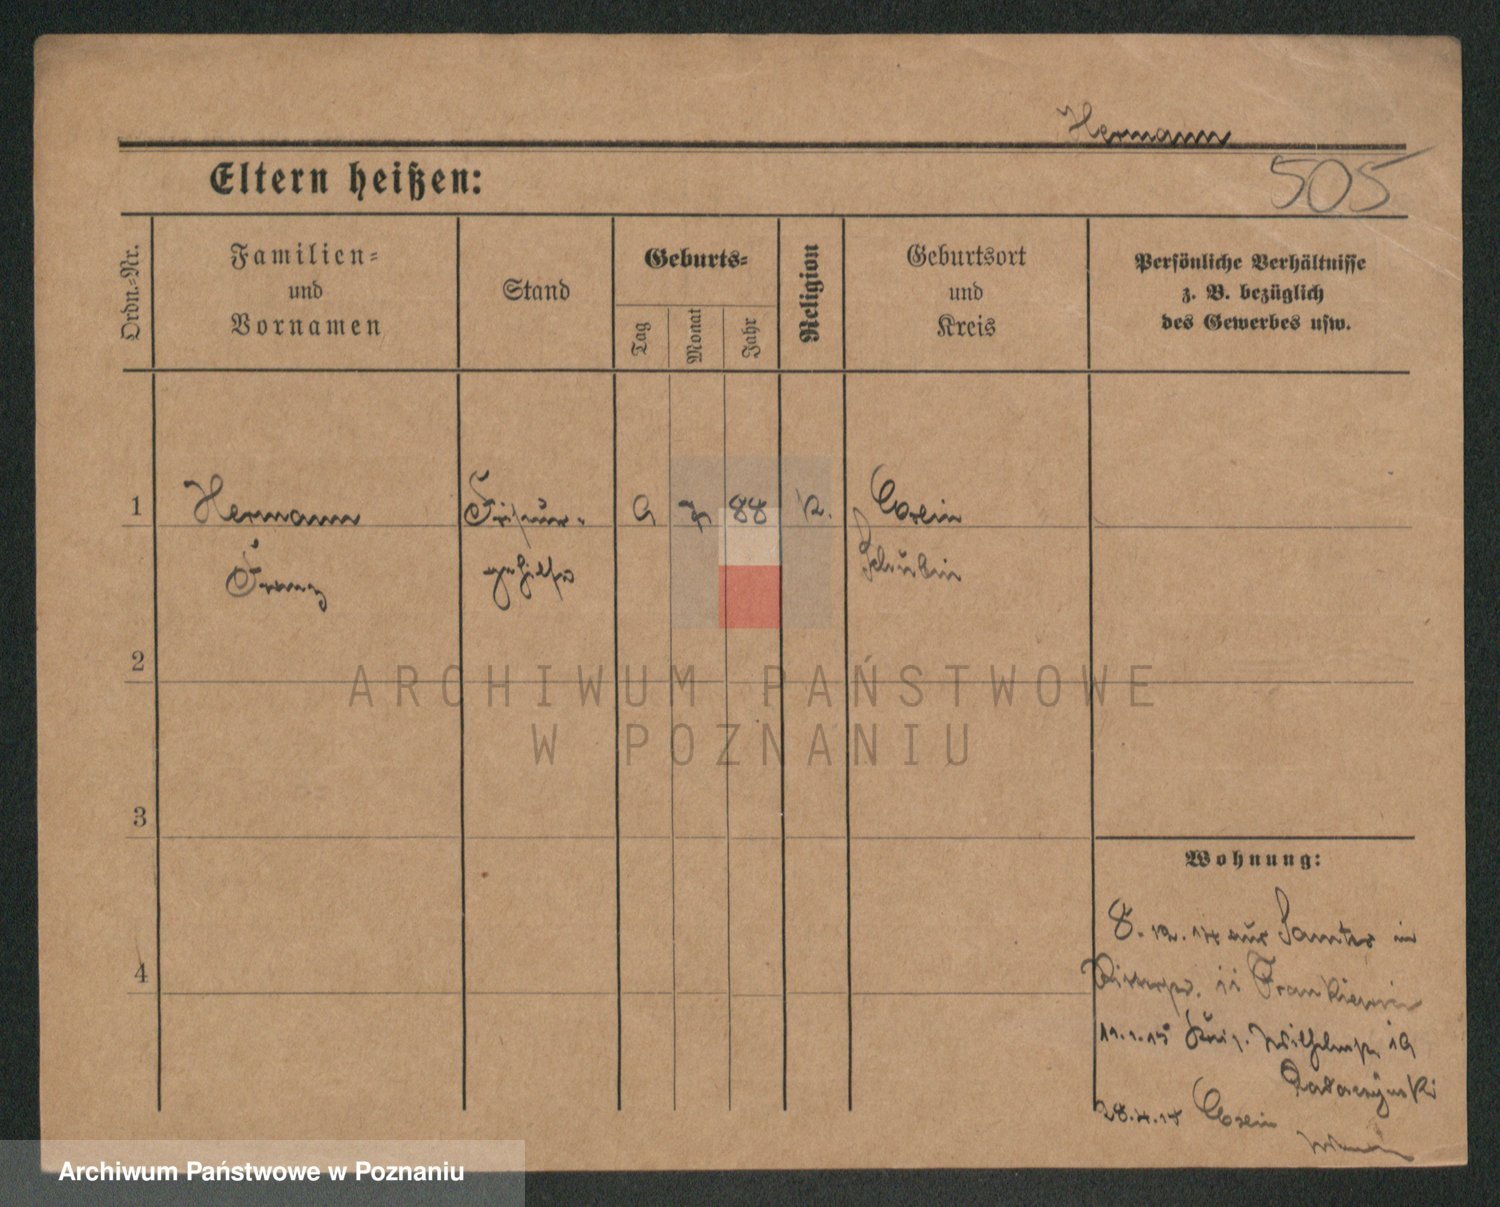 Hermann
505
Eltern heißen:
Ordn.-Nr.
Familien- und Vornamen
Stand
Geburts-
Tag
Monat
Jahr
Religion
Geburtsort und Kreis
Persönliche Verhältnisse
z. B. bezüglich
des Gewerbes usw.
1 Hermann Friseur- 9 7 88 K. Exin
Franz gehilfe Schubin
2
3
4
Wohnung:
8. 12. 14 aus Samter in
11 Frankiewicz
11.1.15 Wilhelmstr. 19
Rataczynski
28.4.15 Exin
ARCHIWUM PAŃSTWOWE
W POZNANIU
Archiwum Państwowe w Poznaniu